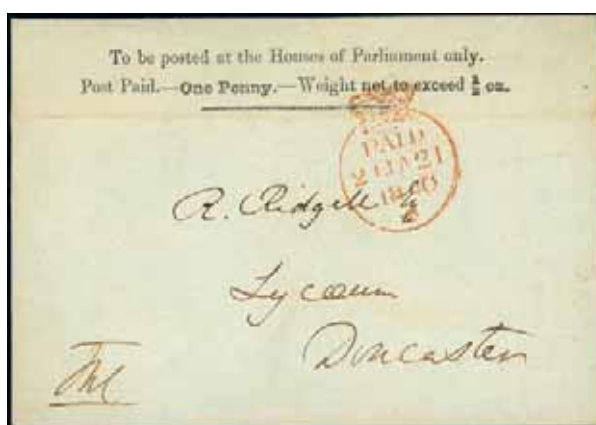 To be posted at the Houses of Parliament only.
Post Paid.—One Penny.—Weight not to exceed ½ oz.
PAID
21
1840
R. Ridgell Esq
Lyceum
Doncaster